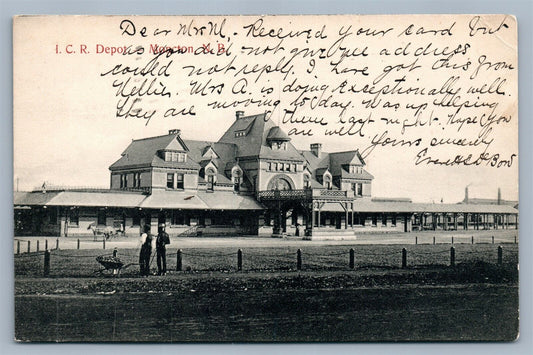 Dear Mr M. Received your card but
I. C. R. Depot, Moncton, N. B.
as you did not give me address
could not reply. I have got this from
Nellie. Mrs A. is doing Exceptionally well.
They are moving to day. Was up helping
there last night. Hope you
are well. Yours sincerely